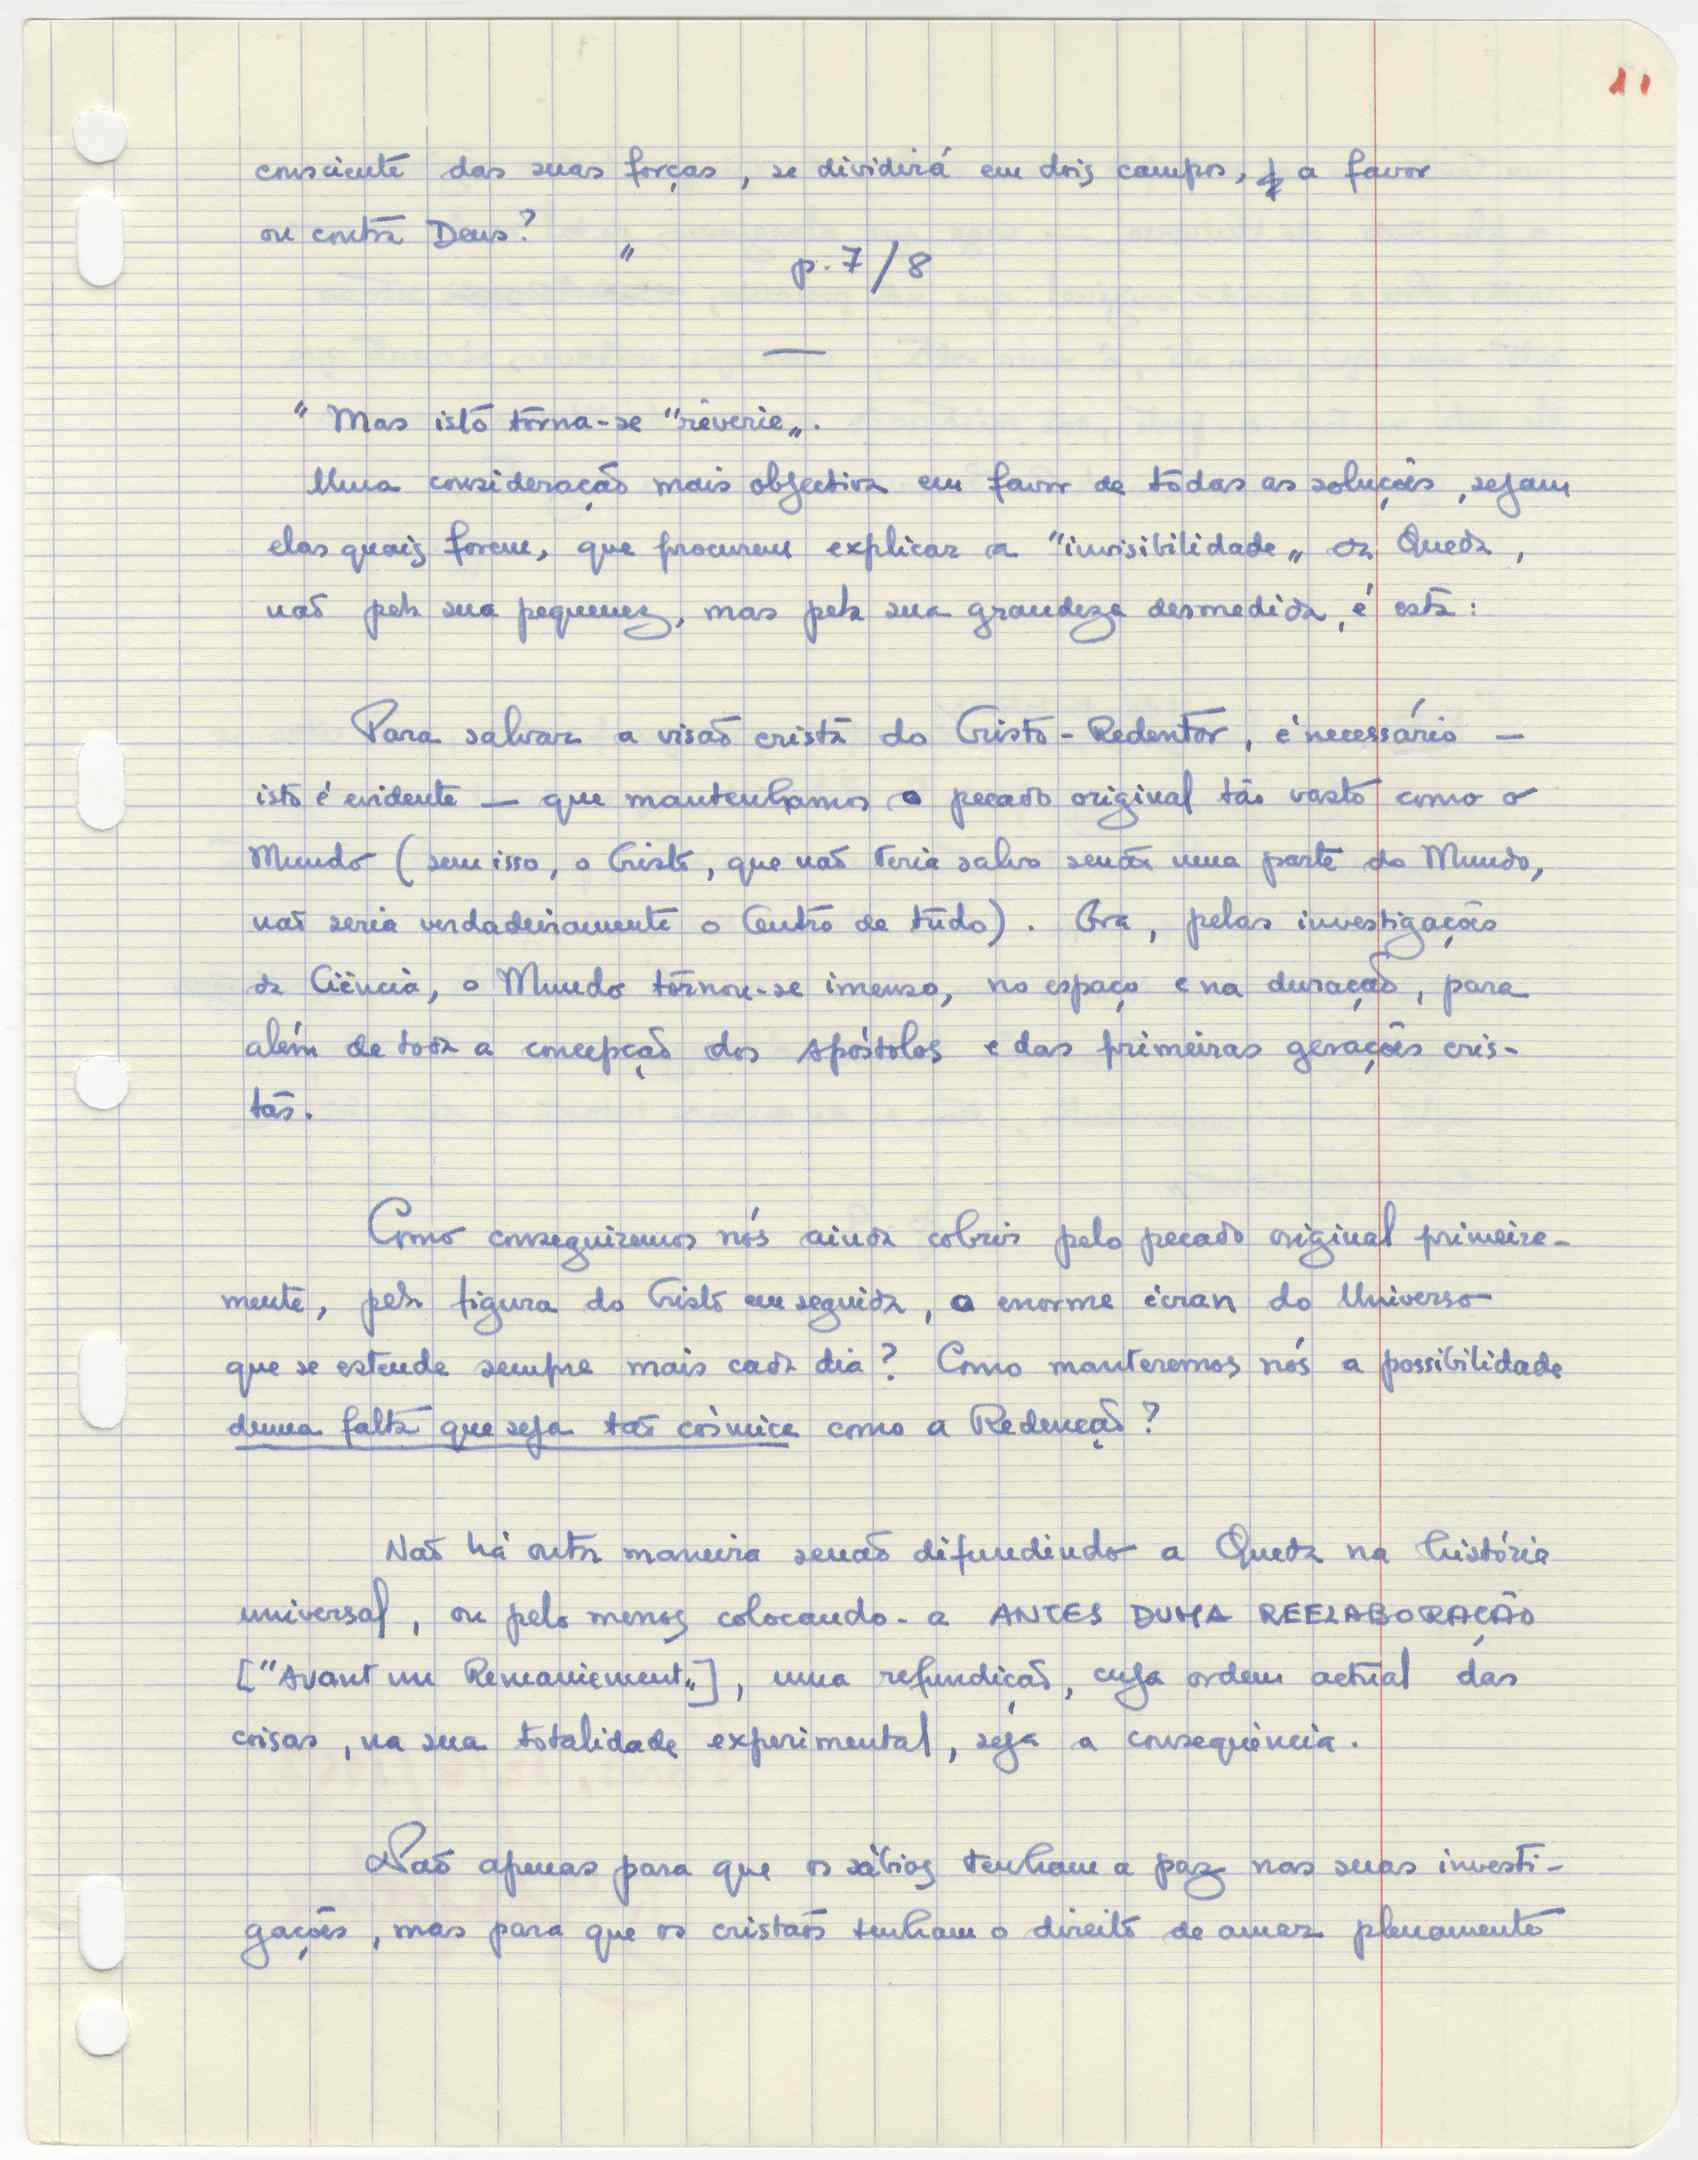 11
consciente das suas forças, se dividirá em dois campos, a favor
ou contra Deus? "
p. 7/8
—
" Mas isto torna-se "rêverie".
Uma consideração mais objectiva em favor de todas as soluções, sejam
elas quais forem, que procurem explicar a "invisibilidade" da Queda,
não pela sua pequenez, mas pela sua grandeza desmedida, é esta:
Para salvar a visão cristã do Cristo-Redentor, é necessário —
isto é evidente — que mantenhamos o pecado original tão vasto como o
Mundo (sem isso, o Cristo, que não teria salvo senão uma parte do Mundo,
não seria verdadeiramente o Centro de tudo). Ora, pelas investigações
da Ciência, o Mundo tornou-se imenso, no espaço e na duração, para
além de toda a concepção dos Apóstolos e das primeiras gerações cris-
tãs.
Como conseguiremos nós ainda cobrir pelo pecado original primeira-
mente, pela figura do Cristo em seguida, o enorme écran do Universo
que se estende sempre mais cada dia? Como manteremos nós a possibilidade
duma falta que seja tão cósmica como a Redenção?
Não há outra maneira senão difundindo a Queda na história
universal, ou pelo menos colocando-a ANTES DUMA REELABORAÇÃO
["Avant un Remaniement"], uma refundição, cuja ordem actual das
coisas, na sua totalidade experimental, seja a consequência.
Não apenas para que os sábios tenham a paz nas suas investi-
gações, mas para que os cristãos tenham o direito de amar plenamente